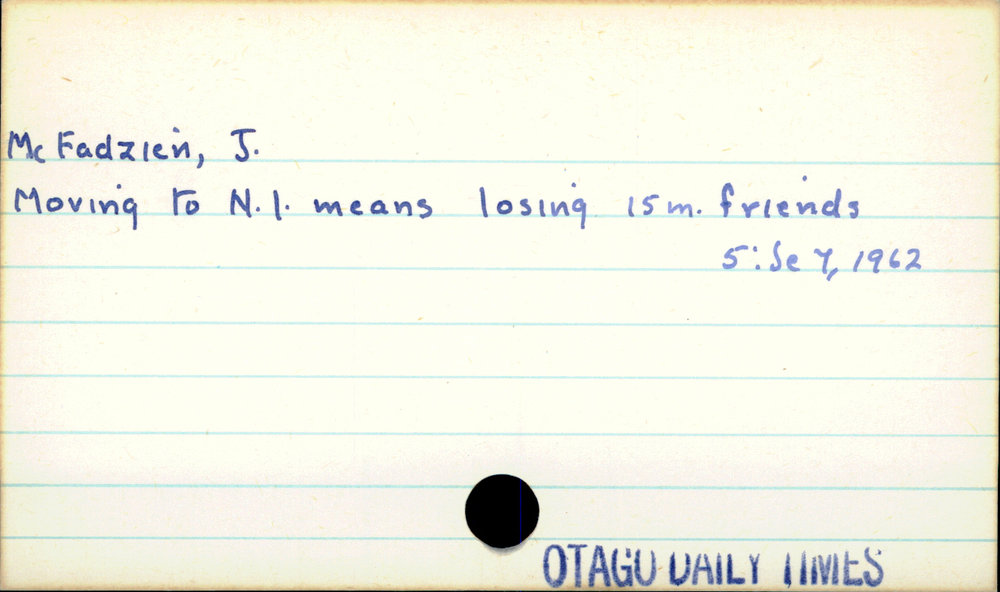 McFadzien, J.
Moving to N.I. means losing 15m. friends
5: Se 7, 1962
OTAGO DAILY TIMES